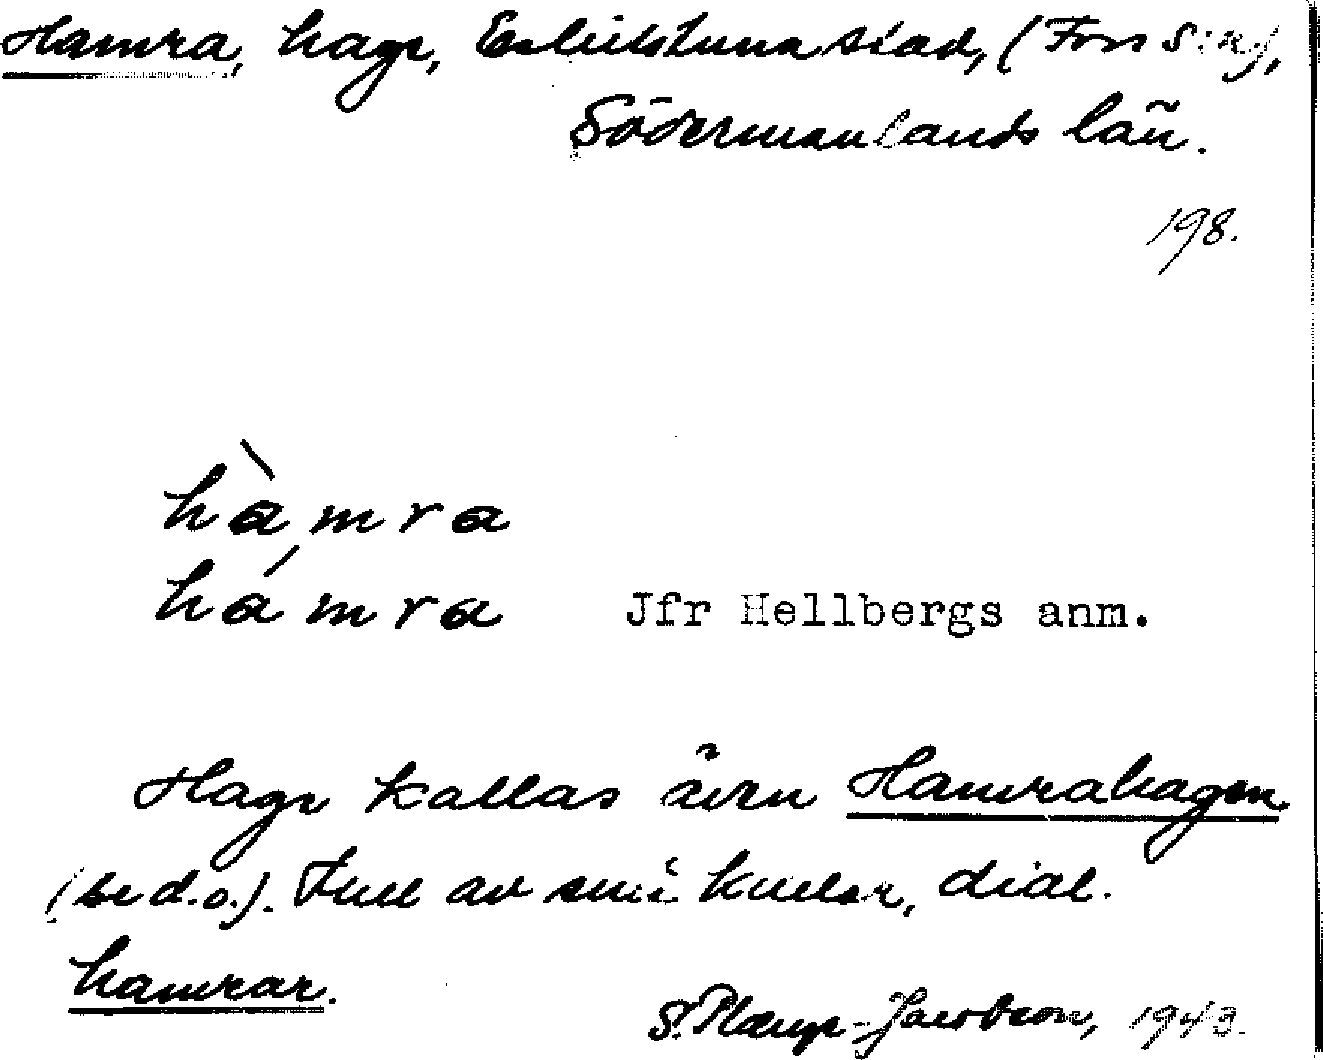 Hamra, hage, Eskilstuna stad, (Fors sn),
Södermanlands län.
198.
hàmra
hámra Jfr Hellbergs anm.
Hage kallas även Hamrahagen
(se d.o.). Full av små kullar, dial.
hamrar.
S. 1943.